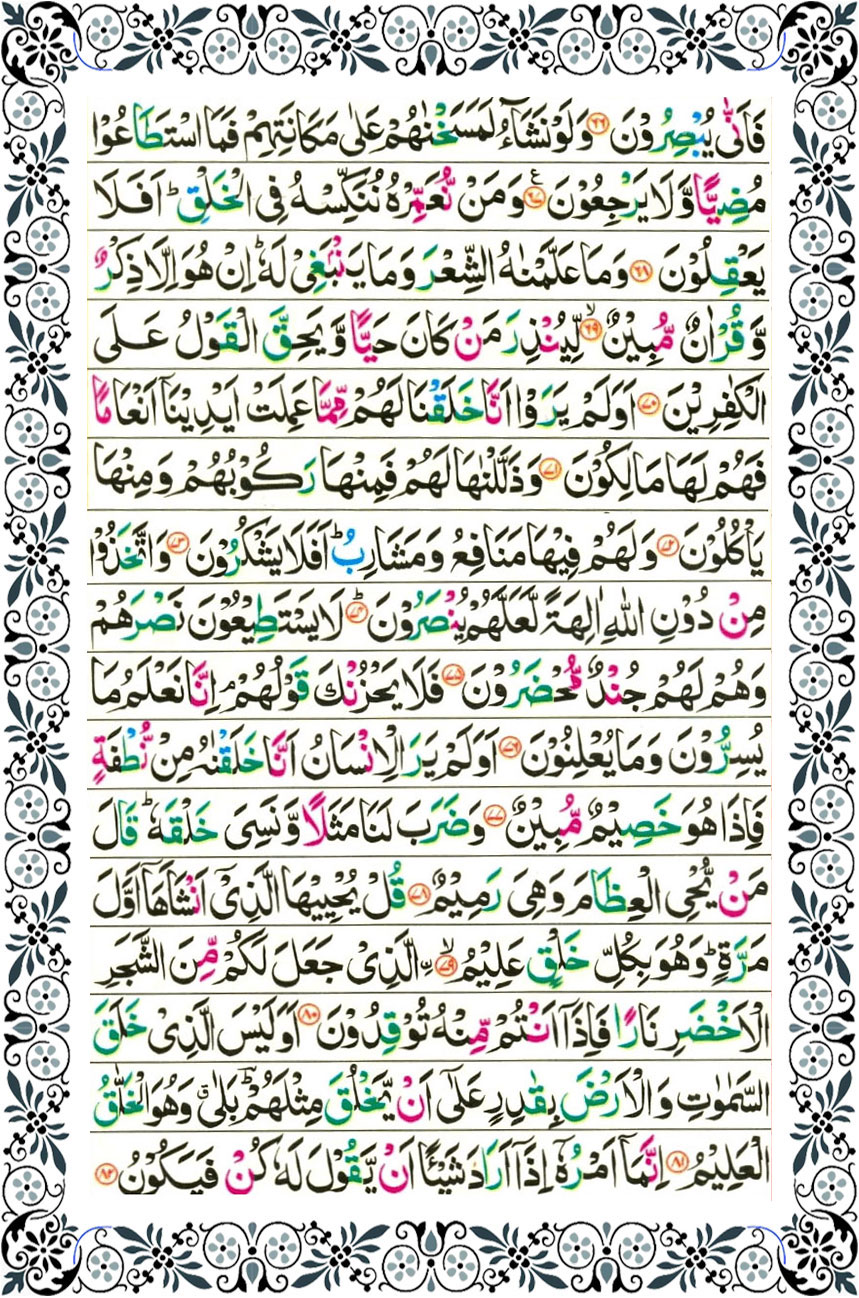 فَاَنّٰی یُبْصِرُوْنَ ﴿۶۶﴾ وَلَوْ نَشَآءُ لَمَسَخْنٰهُمْ عَلٰی مَكَانَتِهِمْ فَمَا اسْتَطَاعُوْا
مُضِیًّا وَّلَا یَرْجِعُوْنَ ﴿۶۷﴾ وَمَنْ نُّعَمِّرْهُ نُنَكِّسْهُ فِی الْخَلْقِ ؕ اَفَلَا
یَعْقِلُوْنَ ﴿۶۸﴾ وَمَا عَلَّمْنٰهُ الشِّعْرَ وَمَا یَنْۢبَغِیْ لَهٗ ؕ اِنْ هُوَ اِلَّا ذِكْرٌ
وَّ قُرْاٰنٌ مُّبِیْنٌ ﴿۶۹﴾ۙ لِّیُنْذِرَ مَنْ كَانَ حَیًّا وَّ یَحِقَّ الْقَوْلُ عَلَی
الْكٰفِرِیْنَ ﴿۷۰﴾ اَوَلَمْ یَرَوْا اَنَّا خَلَقْنَا لَهُمْ مِّمَّا عَمِلَتْ اَیْدِیْنَاۤ اَنْعَامًا
فَهُمْ لَهَا مَالِكُوْنَ ﴿۷۱﴾ وَذَلَّلْنٰهَا لَهُمْ فَمِنْهَا رَكُوْبُهُمْ وَمِنْهَا
یَاْكُلُوْنَ ﴿۷۲﴾ وَلَهُمْ فِیْهَا مَنَافِعُ وَمَشَارِبُ ؕ اَفَلَا یَشْكُرُوْنَ ﴿۷۳﴾ وَاتَّخَذُوْا
مِنْ دُوْنِ اللّٰهِ اٰلِهَةً لَّعَلَّهُمْ یُنْصَرُوْنَ ﴿۷۴﴾ؕ لَا یَسْتَطِیْعُوْنَ نَصْرَهُمْ
وَهُمْ لَهُمْ جُنْدٌ مُّحْضَرُوْنَ ﴿۷۵﴾ فَلَا یَحْزُنْكَ قَوْلُهُمْ ۘ اِنَّا نَعْلَمُ مَا
یُسِرُّوْنَ وَمَا یُعْلِنُوْنَ ﴿۷۶﴾ اَوَلَمْ یَرَ الْاِنْسَانُ اَنَّا خَلَقْنٰهُ مِنْ نُّطْفَةٍ
فَاِذَا هُوَ خَصِیْمٌ مُّبِیْنٌ ﴿۷۷﴾ وَضَرَبَ لَنَا مَثَلًا وَّ نَسِیَ خَلْقَهٗ ؕ قَالَ
مَنْ یُّحْیِ الْعِظَامَ وَهِیَ رَمِیْمٌ ﴿۷۸﴾ قُلْ یُحْیِیْهَا الَّذِیْۤ اَنْشَاَهَاۤ اَوَّلَ
مَرَّةٍ ؕ وَهُوَ بِكُلِّ خَلْقٍ عَلِیْمُ ﴿۷۹﴾ۙ ۣالَّذِیْ جَعَلَ لَكُمْ مِّنَ الشَّجَرِ
الْاَخْضَرِ نَارًا فَاِذَاۤ اَنْتُمْ مِّنْهُ تُوْقِدُوْنَ ﴿۸۰﴾ اَوَلَیْسَ الَّذِیْ خَلَقَ
السَّمٰوٰتِ وَالْاَرْضَ بِقٰدِرٍ عَلٰۤی اَنْ یَّخْلُقَ مِثْلَهُمْ ؕ بَلٰی ۗ وَهُوَ الْخَلّٰقُ
الْعَلِیْمُ ﴿۸۱﴾ اِنَّمَاۤ اَمْرُهٗۤ اِذَاۤ اَرَادَ شَیْـًٔا اَنْ یَّقُوْلَ لَهٗ كُنْ فَیَكُوْنُ ﴿۸۲﴾